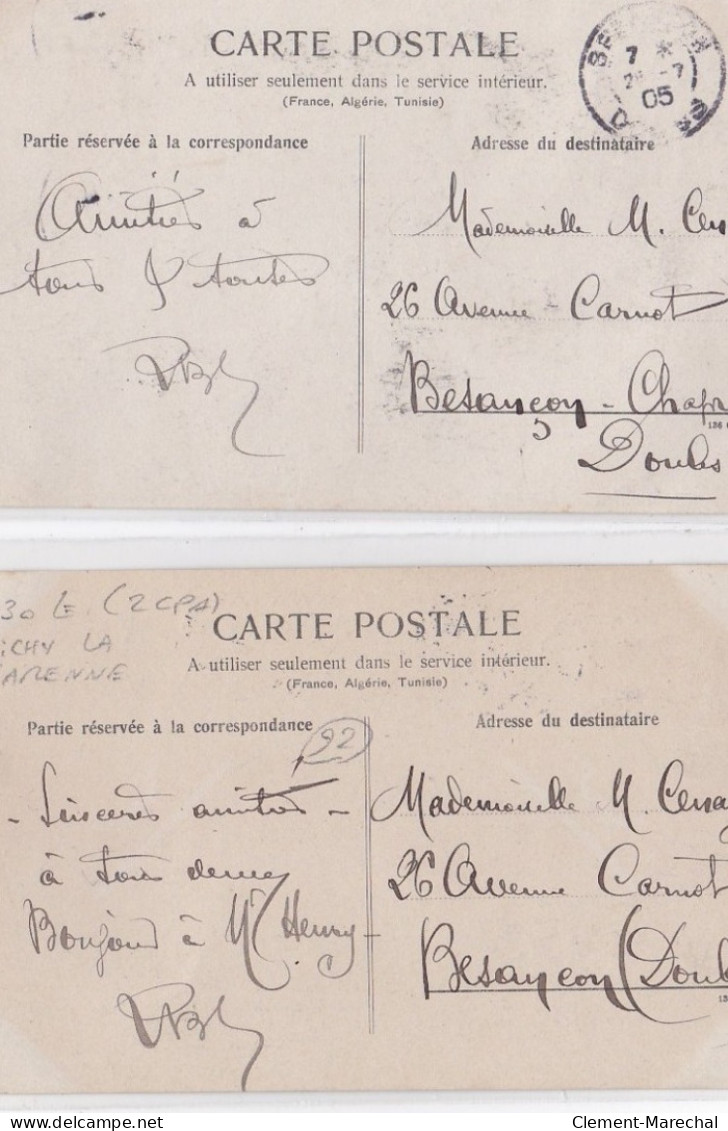 CARTE POSTALE
A utiliser seulement dans le service intérieur.
(France, Algérie, Tunisie)
7
05
Partie réservée à la correspondance
Adresse du destinataire
Amitiés à
tous & toutes
Mademoiselle M.
26 Avenue - Carnot
Besançon -
136
Doubs
30 € (2 CPA)
ICHY LA
ARENNE
CARTE POSTALE
A utiliser seulement dans le service intérieur.
(France, Algérie, Tunisie)
Partie réservée à la correspondance
Adresse du destinataire
92
- Sincères amitiés -
à tous deux
Bonjour à Mr Henry -
Mademoiselle M.
26 Avenue Carnot
Besançon (Doub
13
Clement-Marechal